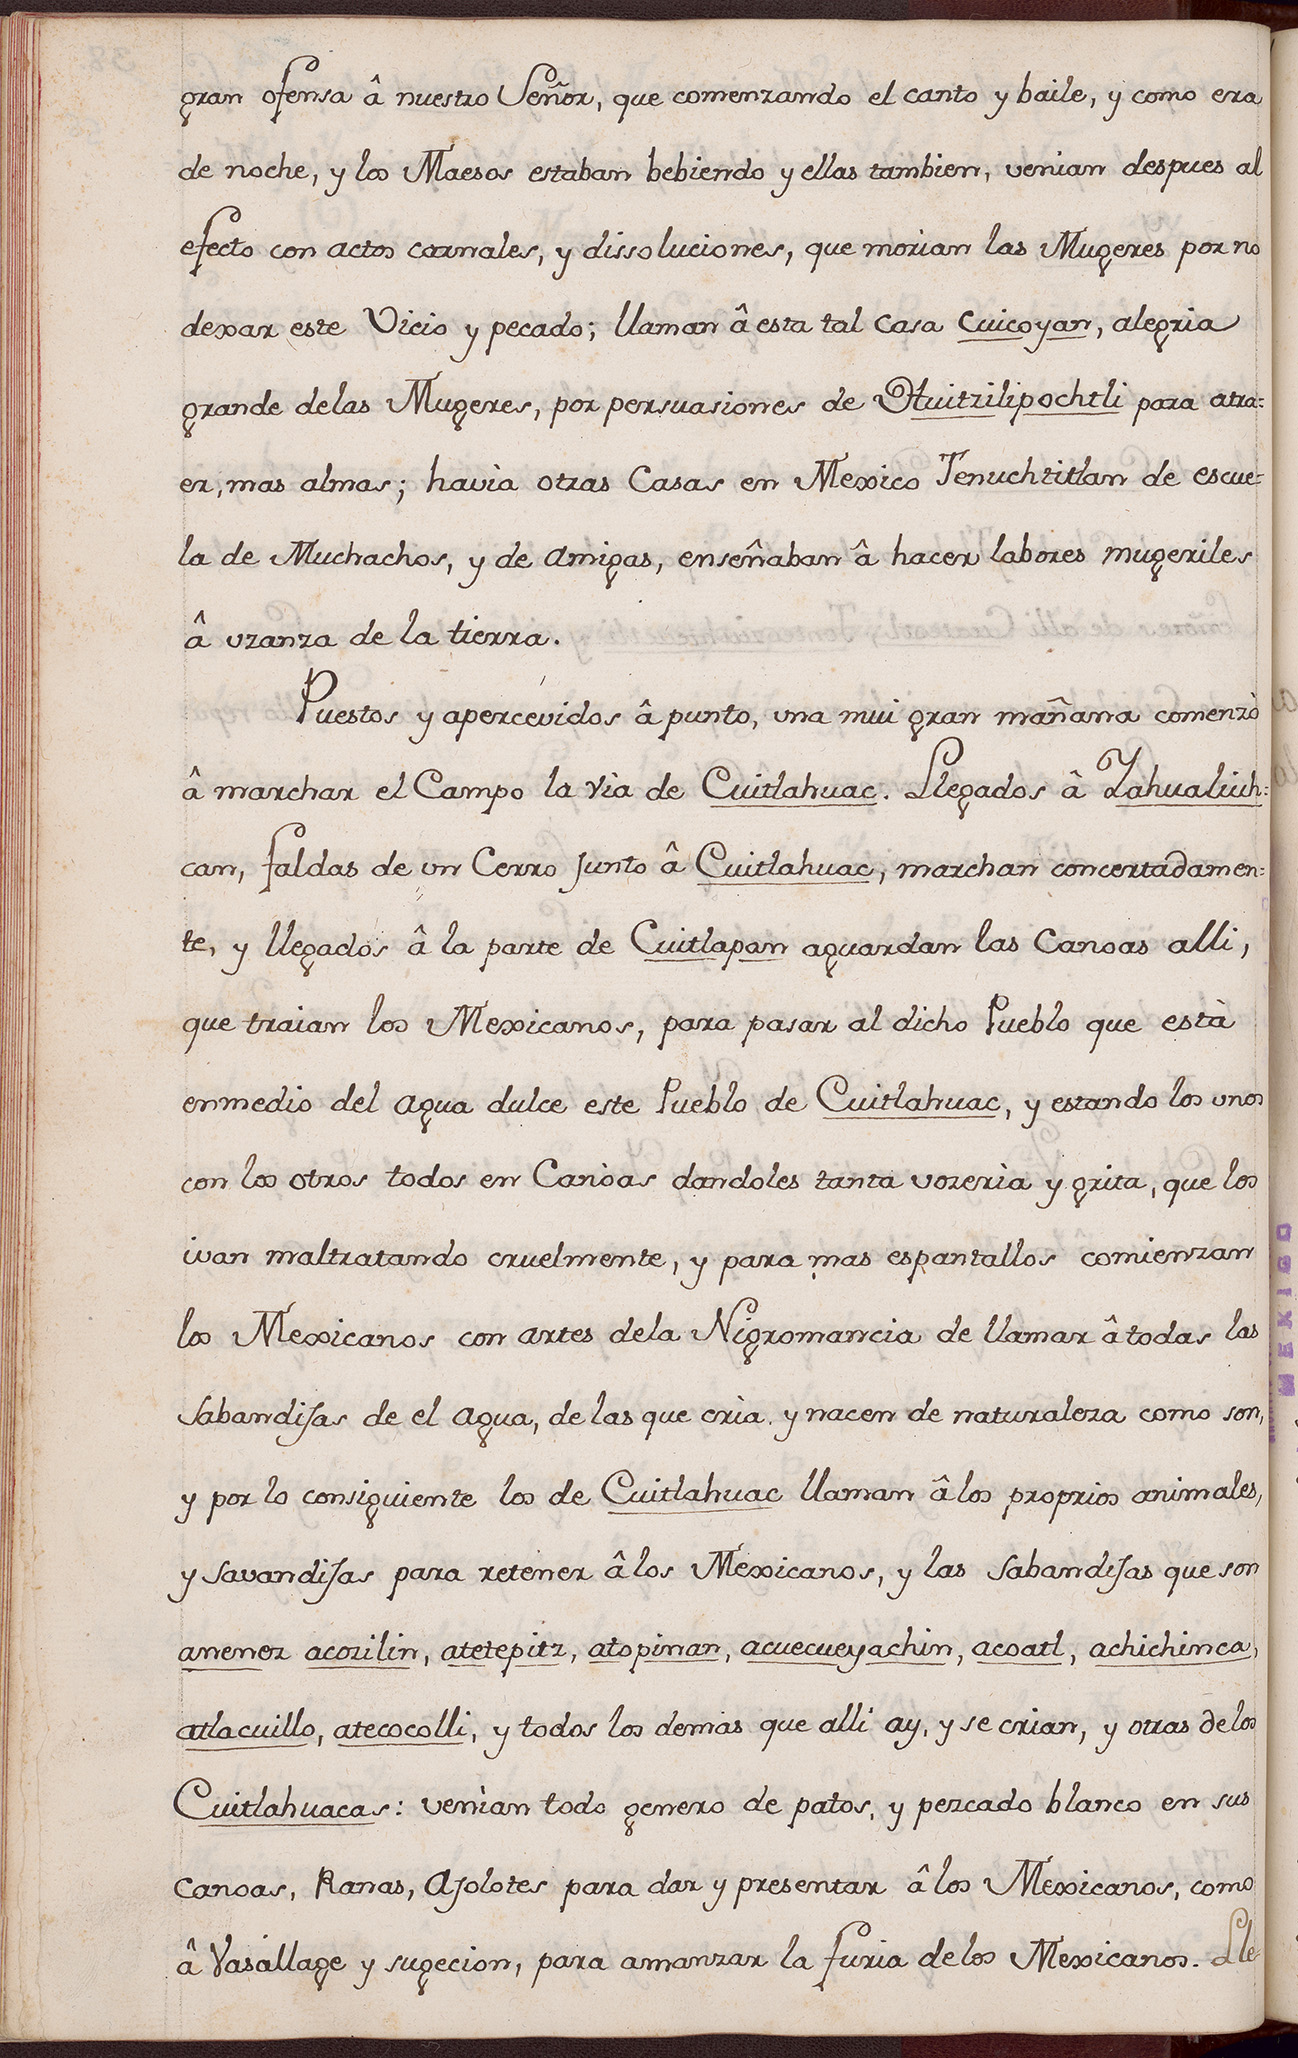 gran ofensa â nuestro Señor, que comenzando el canto y baile, y como era
de noche, y los Maesos estaban bebiendo y ellas tambien, venian despues al
efecto con actos carnales, y dissoluciones, que morian las Mugeres por no
dexar este Vicio y pecado; llaman â esta tal casa Cuicoyan, alegria
grande delas Mugeres, por persuasiones de Huitzilipochtli para atra=
er, mas almas; havia otras Casas en Mexico Tenuchtitlan de escue=
la de Muchachos, y de amigas, enseñaban â hacer labores mugeriles
â vzanza de la tierra.
Puestos y apercevidos â punto, una mui gran mañana comenzò
â marchar el Campo la vìa de Cuitlahuac. Llegados â Yahualiuh=
can, faldas de un Cerro Junto â Cuitlahuac, marchan concertadamen=
te, y llegados â la parte de Cuitlapan aguardan las Canoas alli,
que traian los Mexicanos, para pasar al dicho Pueblo que està
enmedio del agua dulce este Pueblo de Cuitlahuac, y estando los unos
con los otros todos en Canoas dandoles tanta vozerìa y grita, que los
ivan maltratando cruelmente, y para mas espantallos comienzan
los Mexicanos con artes dela Nigromancia de llamar â todas las
Sabandijas de el agua, de las que crìa. y nacen de naturaleza como son,
y por lo consiguiente los de Cuitlahuac llaman â los proprios animales,
y Savandijas para retener â los Mexicanos, y las Sabandijas que son
anenez acozilin, atetepitz, atopinan, acuecueyachin, acoatl, achichinca,
atlacuillo, atecocolli, y todos los demas que alli ay, y se crian, y otras de los
Cuitlahuacas: venian todo genero de patos, y pezcado blanco en sus
canoas, Ranas, Ajolotes para dar y presentar â los Mexicanos, como
â Vasallage y sugecion, para amanzar la furia de los Mexicanos. Lle-
MEXICO